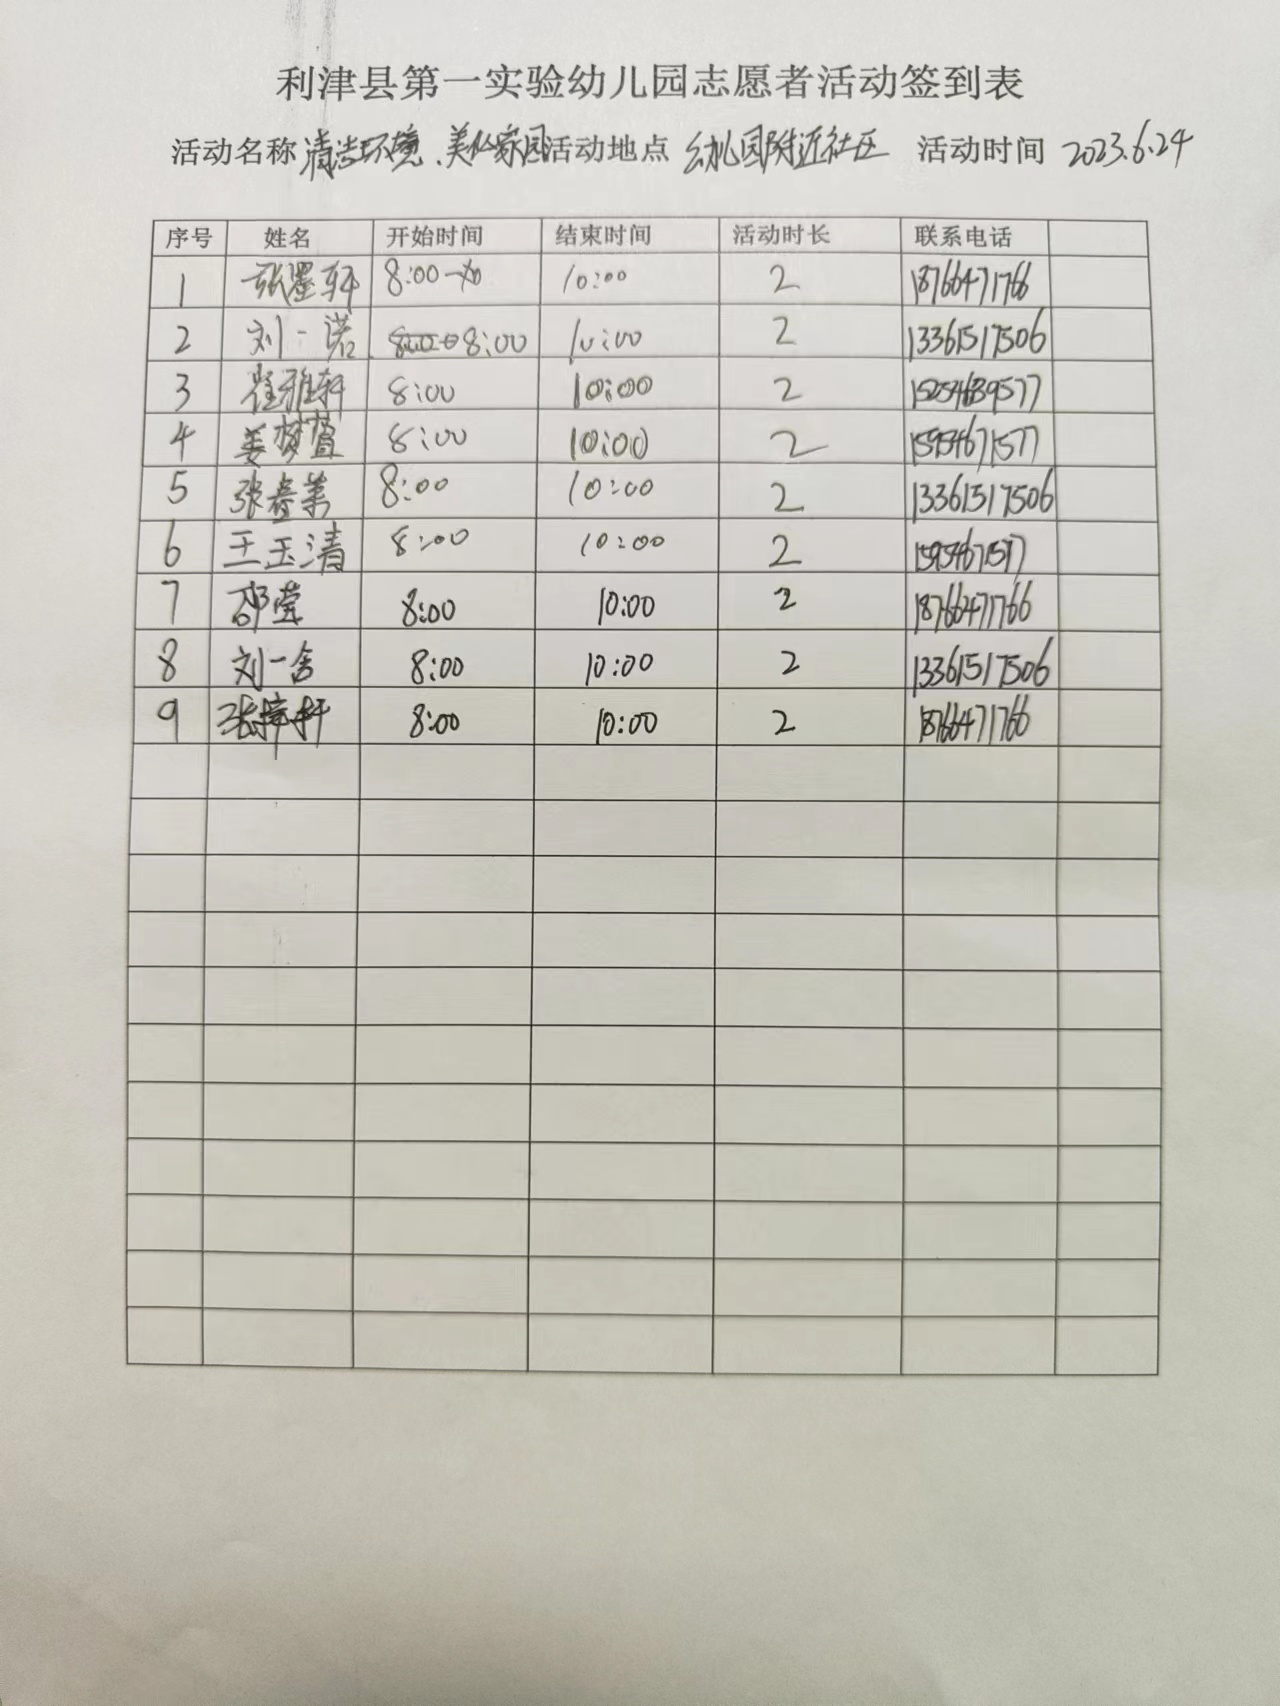 利津县第一实验幼儿园志愿者活动签到表
活动名称 清洁环境、美化家园 活动地点 幼儿园附近社区 活动时间 2023.6.24
序号 姓名 开始时间 结束时间 活动时长 联系电话
1 张墨轩 8:00 10:00 2 18766471766
2 刘一诺 8:00 10:00 2 13361517506
3 崔雅轩 8:00 10:00 2 15254689577
4 姜梦萱 8:00 10:00 2 15954671577
5 张春美 8:00 10:00 2 13361517506
6 王玉清 8:00 10:00 2 15954671577
7 8:00 10:00 2 18766471766
8 刘一含 8:00 10:00 2 13361517506
9 张梓轩 8:00 10:00 2 18766471766